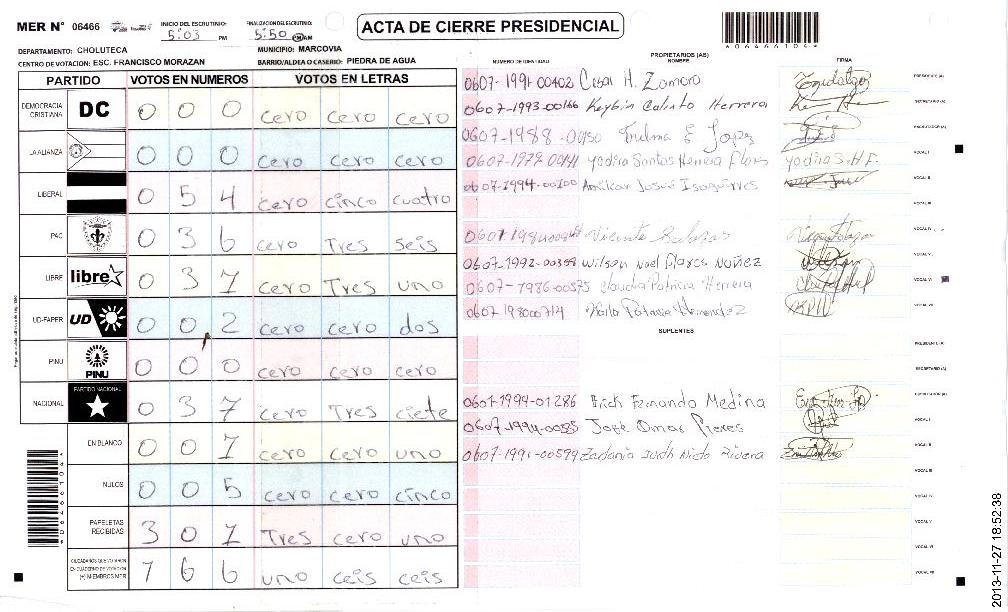 MER N° 06466 INICIO DEL ESCRUTINIO: 5:03 PM FINALIZACION DEL ESCRUTINIO: 5:50 PM/AM ACTA DE CIERRE PRESIDENCIAL
06466104
DEPARTAMENTO: CHOLUTECA MUNICIPIO: MARCOVIA
CENTRO DE VOTACION: ESC. FRANCISCO MORAZAN BARRIO/ALDEA O CASERIO: PIEDRA DE AGUA
PROPIETARIOS (AS)
NUMERO DE IDENTIDAD NOMBRE FIRMA
PARTIDO VOTOS EN NUMEROS VOTOS EN LETRAS
DEMOCRACIA CRISTIANA DC 0 0 0 cero cero cero
LA ALIANZA 0 0 0 cero cero cero
LIBERAL 0 5 4 cero cinco cuatro
PAC 0 3 6 cero Tres seis
LIBRE libre 0 3 1 cero Tres uno
UD-FAPER UD 0 0 2 cero cero dos
PINU PINU 0 0 0 cero cero cero
NACIONAL PARTIDO NACIONAL 0 3 7 cero Tres ciete
EN BLANCO 0 0 1 cero cero uno
NULOS 0 0 5 cero cero cinco
PAPELETAS RECIBIDAS 3 0 1 Tres cero uno
CIUDADANOS QUE VOTARON EN CUADERNO DE VOTACION (+) MIEMBROS MER 1 6 6 uno ceis ceis
0607-1991-00402 Cesar H. Zamora PRESIDENTE (A)
0607-1993-00166 Keybin Calinto Herrera SECRETARIO (A)
0607-1988- Telma E Lopez ESCRUTADOR (A)
Yadira Santos Herrera Flores Yadira S.H F. VOCAL I
0607-1994-00100 Amilcar Josue VOCAL II
VOCAL III
Vicente Salazar VOCAL IV
0607-1992-00359 Wilson Noel Flores Nuñez VOCAL V
0607-1986-00575 Claudia Patricia Herrera VOCAL VI
0607 198000714 Karla Patricia Hernandez VOCAL VII
SUPLENTES
PRESIDENTE (A)
SECRETARIO (A)
0607-1994-01286 Erick Fernando Medina ESCRUTADOR (A)
0607-1994-0085 José Omar VOCAL I
0607-1991-00599 Judith Rivera VOCAL II
VOCAL III
VOCAL IV
VOCAL V
VOCAL VI
VOCAL VII
2013-11-27 18:52:38